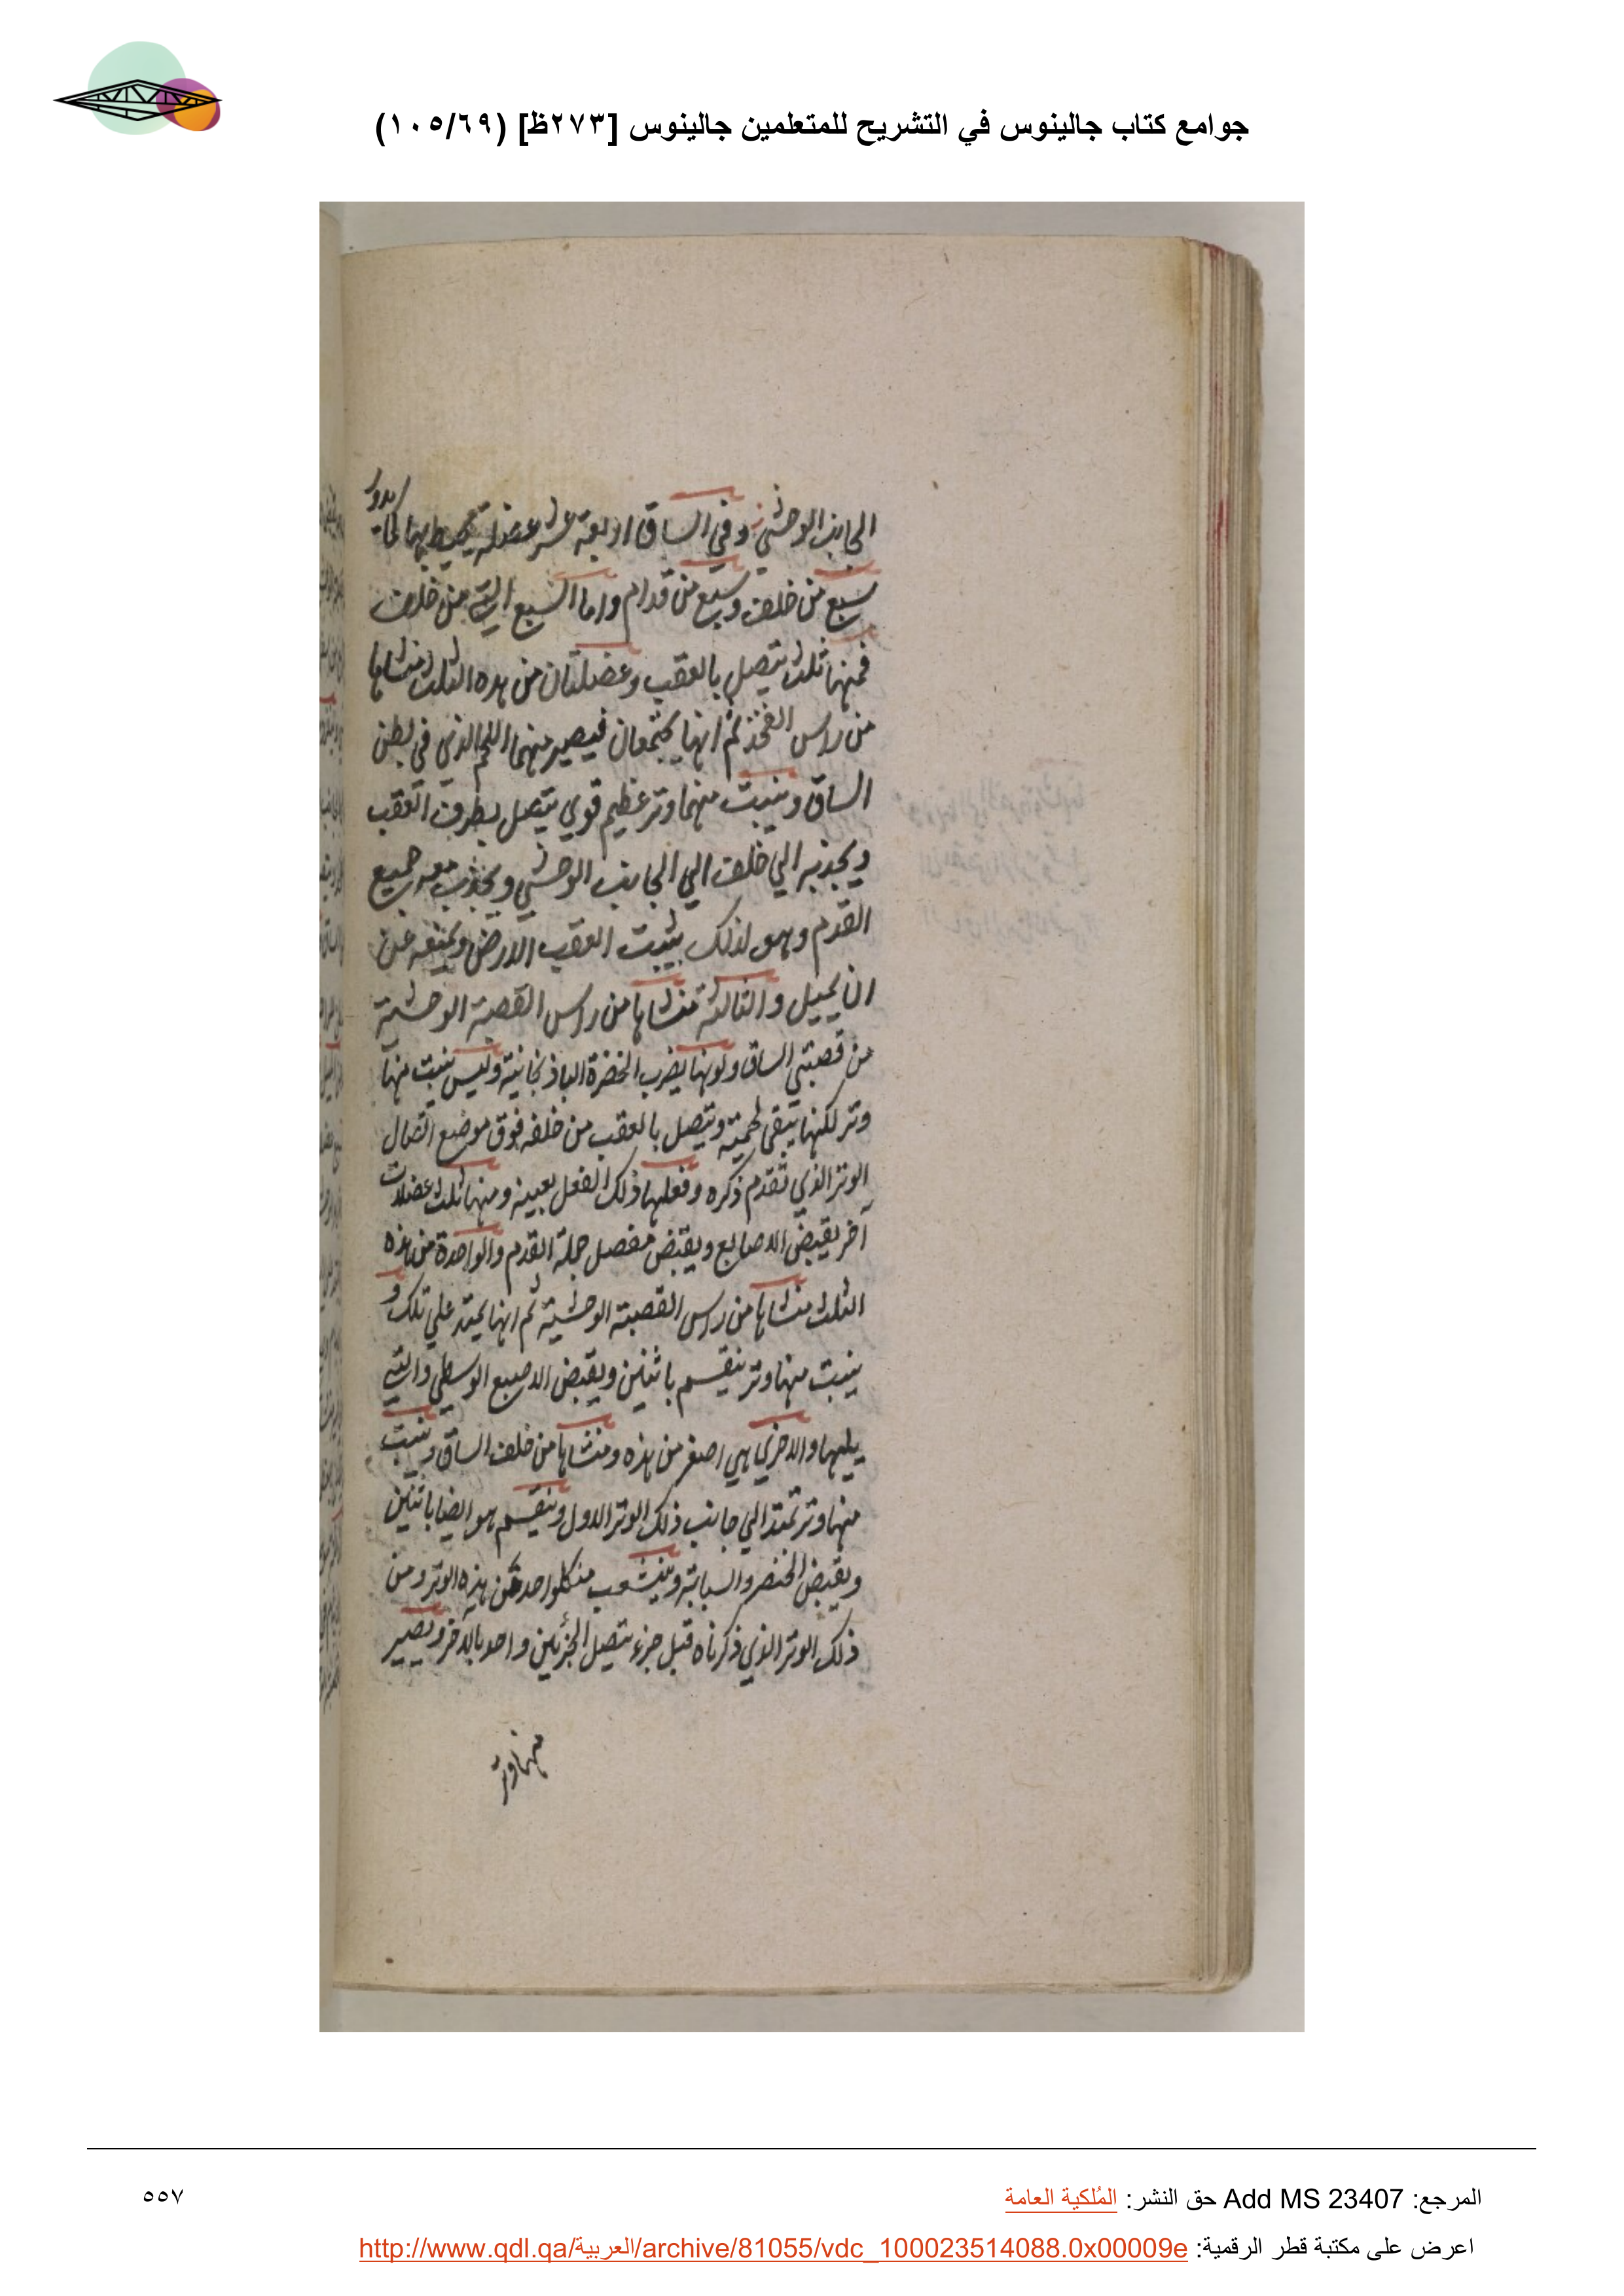 جوامع كتاب جالينوس في التشريح للمتعلمين جالينوس [٢٧٣ظ] (١٠٥/٦٩)
الجانب الوحشي وفي الساق اربعة عشر عضلة تحيط بها كما يدور
سبع من خلف وسبع من قدام واما السبع التي من خلف
فمنها ثلث يتصل بالعقب وعضلتان من هذه الثلث منشاها
من راس الفخذ ثم انها يجتمعان فيصير منهما اللحم الذي في بطن
الساق وينبت منهما وتر عظيم قوي يتصل بطرف العقب
ويجذبه الي خلف الي الجانب الوحشي ويجذب معه جميع
القدم وهو لذلك يثبت العقب الارض ويمنعه عن
ان يميل والثالثة منشاها من راس القصبة الوحشية
من قصبتي الساق ولونها يضرب الخضرة الباذنجانية وليس ينبت منها
وتر لكنها يبقي لحمية ويتصل بالعقب من خلفه فوق موضع اتصال
الوتر الذي تقدم ذكره وفعلها ذلك الفعل بعينه ومنها ثلث عضلات
آخر يقبض الاصابع ويقبض مفصل جملة القدم والواحدة من هذه
الثلث منشاها من راس القصبة الوحشية ثم انها يمتد علي تلك و
ينبت منها وتر ينقسم باثنين ويقبض الاصبع الوسطي والتي
يليها والاخري هي اصغر من هذه ومنشاها من خلف الساق وينبت
منها وتر تمتد الي جانب ذلك الوتر الاول وينقسم هو ايضا باثنين
ويقبض الخنصر والسبابة ويتشعب من كلواحد من هذه الوتر ومن
ذلك الوتر الذي ذكرناه قبل جزء يتصل الجزئين واحد بالاخر ويصير
منهما وتر
المرجع: Add MS 23407 حق النشر: المُلكية العامة
٥٥٧
اعرض على مكتبة قطر الرقمية: http://www.qdl.qa/العربية/archive/81055/vdc_100023514088.0x00009e